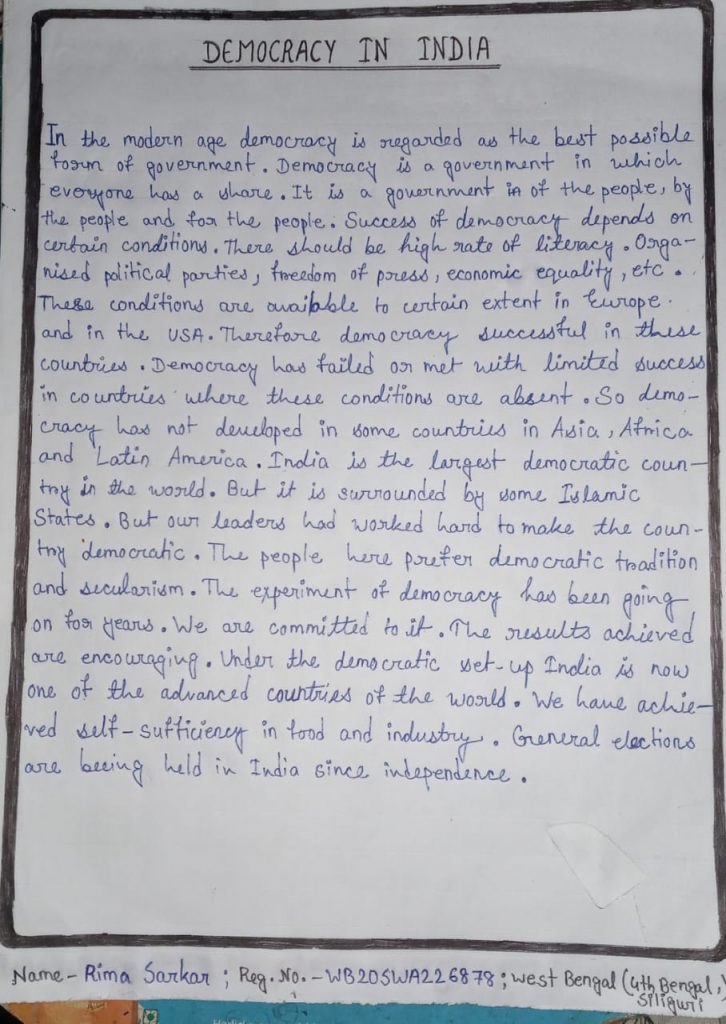 DEMOCRACY IN INDIA
In the modern age democracy is regarded as the best possible
form of government. Democracy is a government in which
everyone has a share. It is a government in of the people, by
the people and for the people. Success of democracy depends on
certain conditions. There should be high rate of literacy. Orga-
nised political parties, freedom of press, economic equality, etc.
These conditions are available to certain extent in Europe.
and in the USA. Therefore democracy successful in these
countries. Democracy has failed or met with limited success
in countries where these conditions are absent. So demo-
cracy has not developed in some countries in Asia, Africa
and Latin America. India is the largest democratic coun-
try in the world. But it is surrounded by some Islamic
States. But our leaders had worked hard to make the coun-
try democratic. The people here prefer democratic tradition
and secularism. The experiment of democracy has been going
on for years. We are committed to it. The results achieved
are encouraging. Under the democratic set-up India is now
one of the advanced countries of the world. We have achie-
ved self-sufficiency in food and industry. General elections
are beeing held in India since independence.
Name - Rima Sarkar ; Reg. No. - WB20SWA226878 ; West Bengal (4th Bengal,
Siliguri